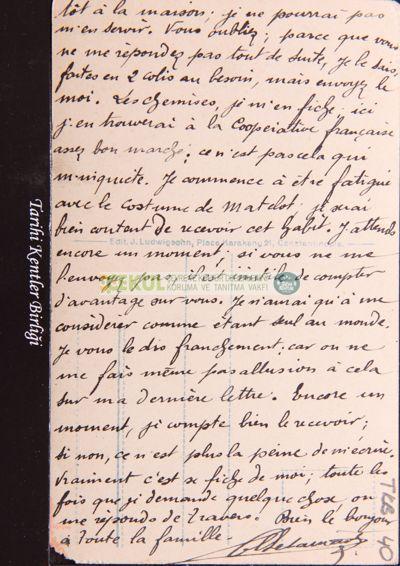 tôt à la maison; je ne pourrai pas
m'en servir. Vous oubliez; parce que vous
ne me répondez pas tout de suite, Je le sais,
faites en 2 colis au besoin, mais envoyez le
moi. Les chemises, je m'en fiche; ici
j'en trouverai à la Cooperative française
assez bon marché; ce n'est pas cela qui
m'inquiète. Je commence à être fatigué
avec le costume de Matelot je serai
bien content de recevoir cet habit. J'attends
Edit. J. Ludwigsohn, Place Karakeuy 21, Constantinople.
encore un moment; si vous ne me
l'envoyez pas, il est inutile de compter
ÇEKÜL
KORUMA VE TANITMA VAKFI
d'avantage sur vous. Je n'aurai qu'à me
considérer comme étant seul au monde.
Je vous le dis franchement, car on ne
me fais même pas allusion à cela
sur ma dernière lettre. Encore un
moment, je compte bien le recevoir;
si non, ce n'est plus la peine de m'écrire.
Vraiment c'est se fiche de moi; toute les
fois que je demande quelque chose, on
me réponds de travers. Bien le bonjour
à toute la famille.
Tarihi Kentler Birliği
TLB 40